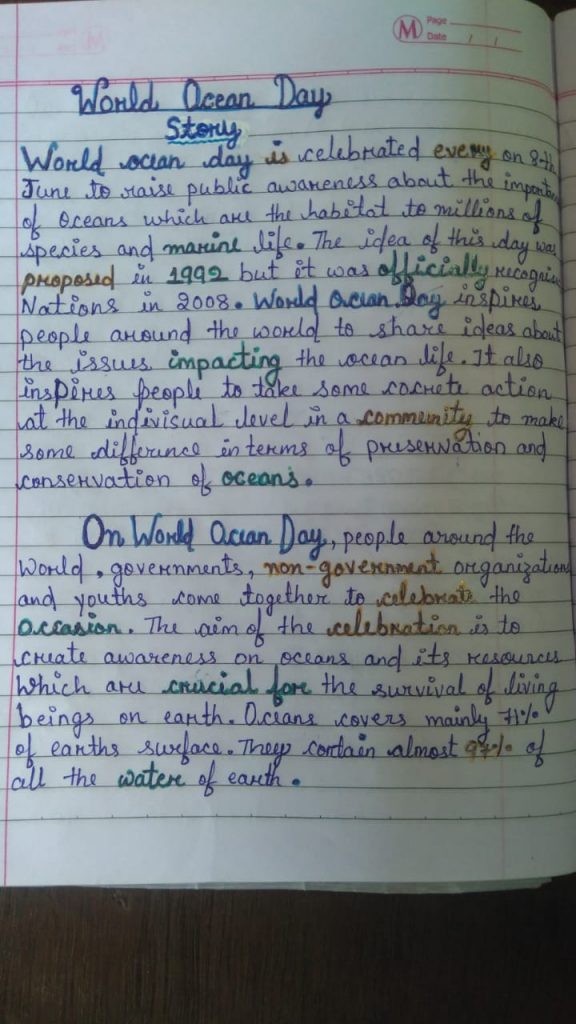 M Page
Date / /
World Ocean Day
Story
World ocean day is celebrated every on 8th
June to raise public awareness about the
of Oceans which are the habitat to millions of
species and marine life. The idea of this day was
proposed in 1992 but it was officially
Nations in 2008. World Ocean Day inspires
people around the world to share ideas about
the issues impacting the ocean life. It also
inspires people to take some cocrete action
at the indivisual level in a community to make
some difference in terms of preservation and
conservation of oceans.
On World Ocean Day, people around the
World, governments, non-government organizations
and youths come together to celebrate the
Occasion. The aim of the celebration is to
create awareness on oceans and its resources
which are crucial fore the survival of living
beings on earth. Oceans covers mainly 71%
of earths surface. They contain almost 97% of
all the water of earth.